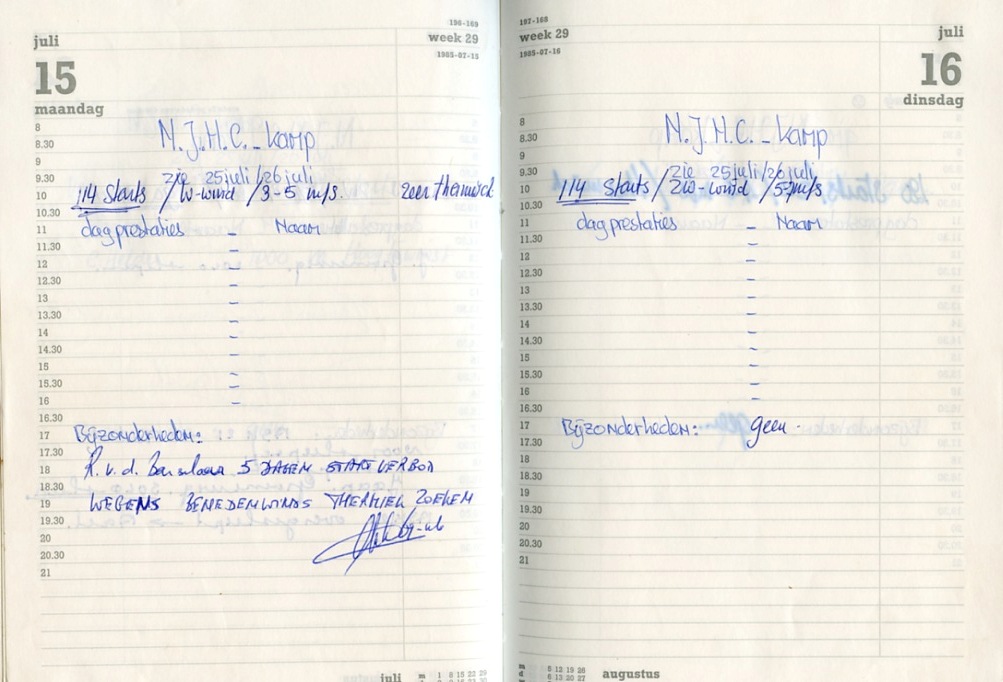 juli
196-169
week 29
1985-07-15
15
maandag
8
8.30
N.J.H.C. - kamp
9
9.30
zie 25 juli/26 juli
10
114 Starts / W-wind / 3-5 m/s. zeer thermisch
10.30
11
dagprestaties - Naam
11.30
-
12
-
12.30
-
13
-
13.30
-
14
-
14.30
-
15
-
15.30
-
16
-
16.30
17
Bijzonderheden:
17.30
18
R. v. d. 5 DAGEN STARTVERBOD
18.30
19
WEGENS BENEDENWINDS THERMIEK ZOEKEN
19.30
20
20.30
21
juli
m 1 8 15 22 29
197-168
week 29
1985-07-16
juli
16
dinsdag
8
8.30
N.J.H.C. - kamp
9
9.30
zie 25 juli/26 juli
10
114 Starts / ZW-wind / m/s
10.30
11
dagprestaties - Naam
11.30
-
12
-
12.30
-
13
-
13.30
-
14
-
14.30
-
15
-
15.30
-
16
-
16.30
17
Bijzonderheden: geen.
17.30
18
18.30
19
19.30
20
20.30
21
augustus
m 5 12 19 26
d 6 13 20 27